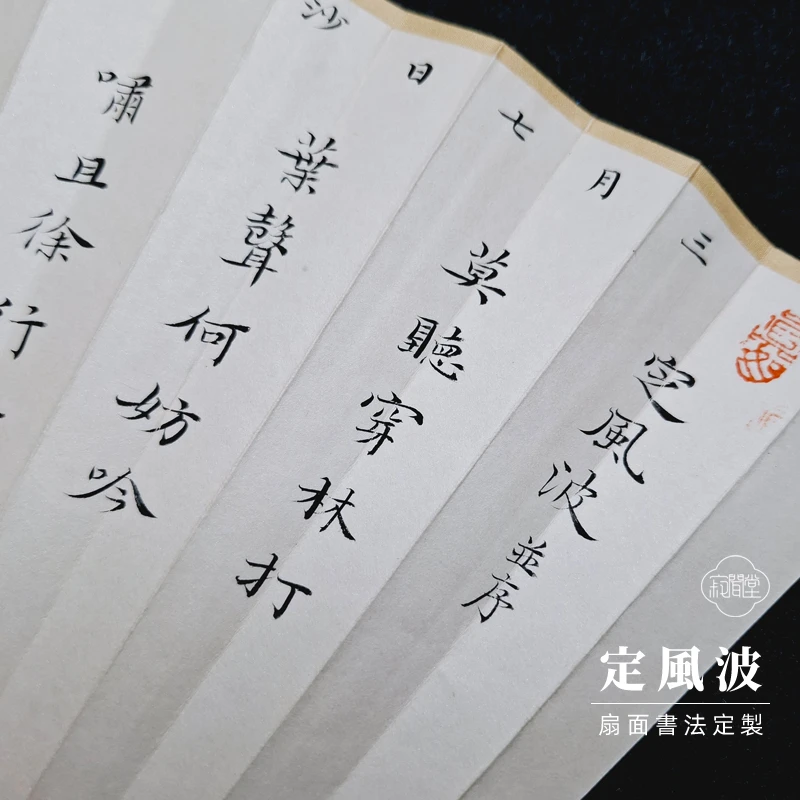 定風波 並序
三
月
七
日
沙
莫聽穿林打
葉聲何妨吟
嘯且徐行
寂閒堂
定風波
扇面書法定製